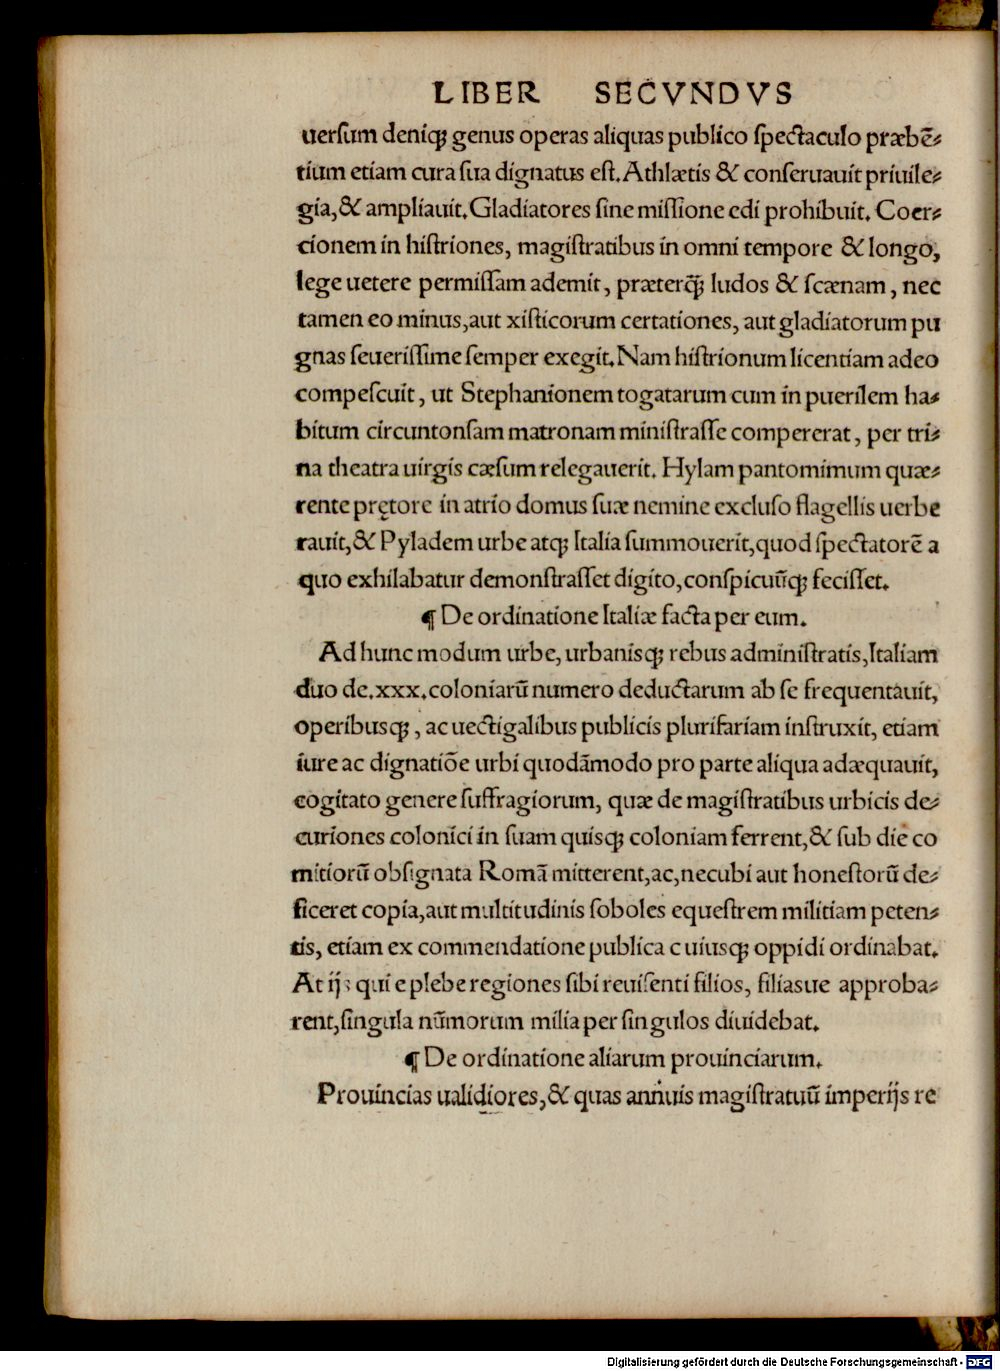 LIBER SECVNDVS
uerſum deniqꝫ genus operas aliquas publico ſpectaculo præbē⸗
tium etiam cura ſua dignatus eſt. Athlætis & conſeruauit priuile⸗
gia, & ampliauit. Gladiatores ſine miſſione edi prohibuit. Coer⸗
cionem in hiſtriones, magiſtratibus in omni tempore & longo,
lege uetere permiſſam ademit, præterq̃ꝫ ludos & ſcænam, nec
tamen eo minus, aut xiſticorum certationes, aut gladiatorum pu
gnas ſeueriſſime ſemper exegit. Nam hiſtrionum licentiam adeo
compeſcuit, ut Stephanionem togatarum cum in puerilem ha⸗
bitum circuntonſam matronam miniſtraſſe compererat, per tri⸗
na theatra uirgis cæſum relegauerit. Hylam pantomimum quæ⸗
rente prętore in atrio domus ſuæ nemine excluſo flagellis uerbe
rauit, & Pyladem urbe atqꝫ Italia ſummouerit, quod ſpectatorē a
quo exhilabatur demonſtraſſet digito, conſpicuūqꝫ feciſſet.
¶ De ordinatione Italiæ facta per eum.
Ad hunc modum urbe, urbanisqꝫ rebus adminiſtratis, Italiam
duo de.xxx. coloniarū numero deductarum ab ſe frequentauit,
operibusqꝫ, ac uectigalibus publicis plurifariam inſtruxit, etiam
iure ac dignatiōe urbi quodāmodo pro parte aliqua adæquauit,
cogitato genere ſuffragiorum, quæ de magiſtratibus urbicis de⸗
curiones colonici in ſuam quisqꝫ coloniam ferrent, & ſub die co
mitiorū obſignata Romā mitterent, ac, necubi aut honeſtorū de⸗
ficeret copia, aut multitudinis ſoboles equeſtrem militiam peten⸗
tis, etiam ex commendatione publica cuiusqꝫ oppidi ordinabat.
At ijs qui e plebe regiones ſibi reuiſenti filios, filiasue approba⸗
rent, ſingula nūmorum milia per ſingulos diuidebat.
¶ De ordinatione aliarum prouinciarum.
Prouincias ualidiores, & quas annuis magiſtratuū imperijs re
Digitalisierung gefördert durch die Deutsche Forschungsgemeinschaft - DFG